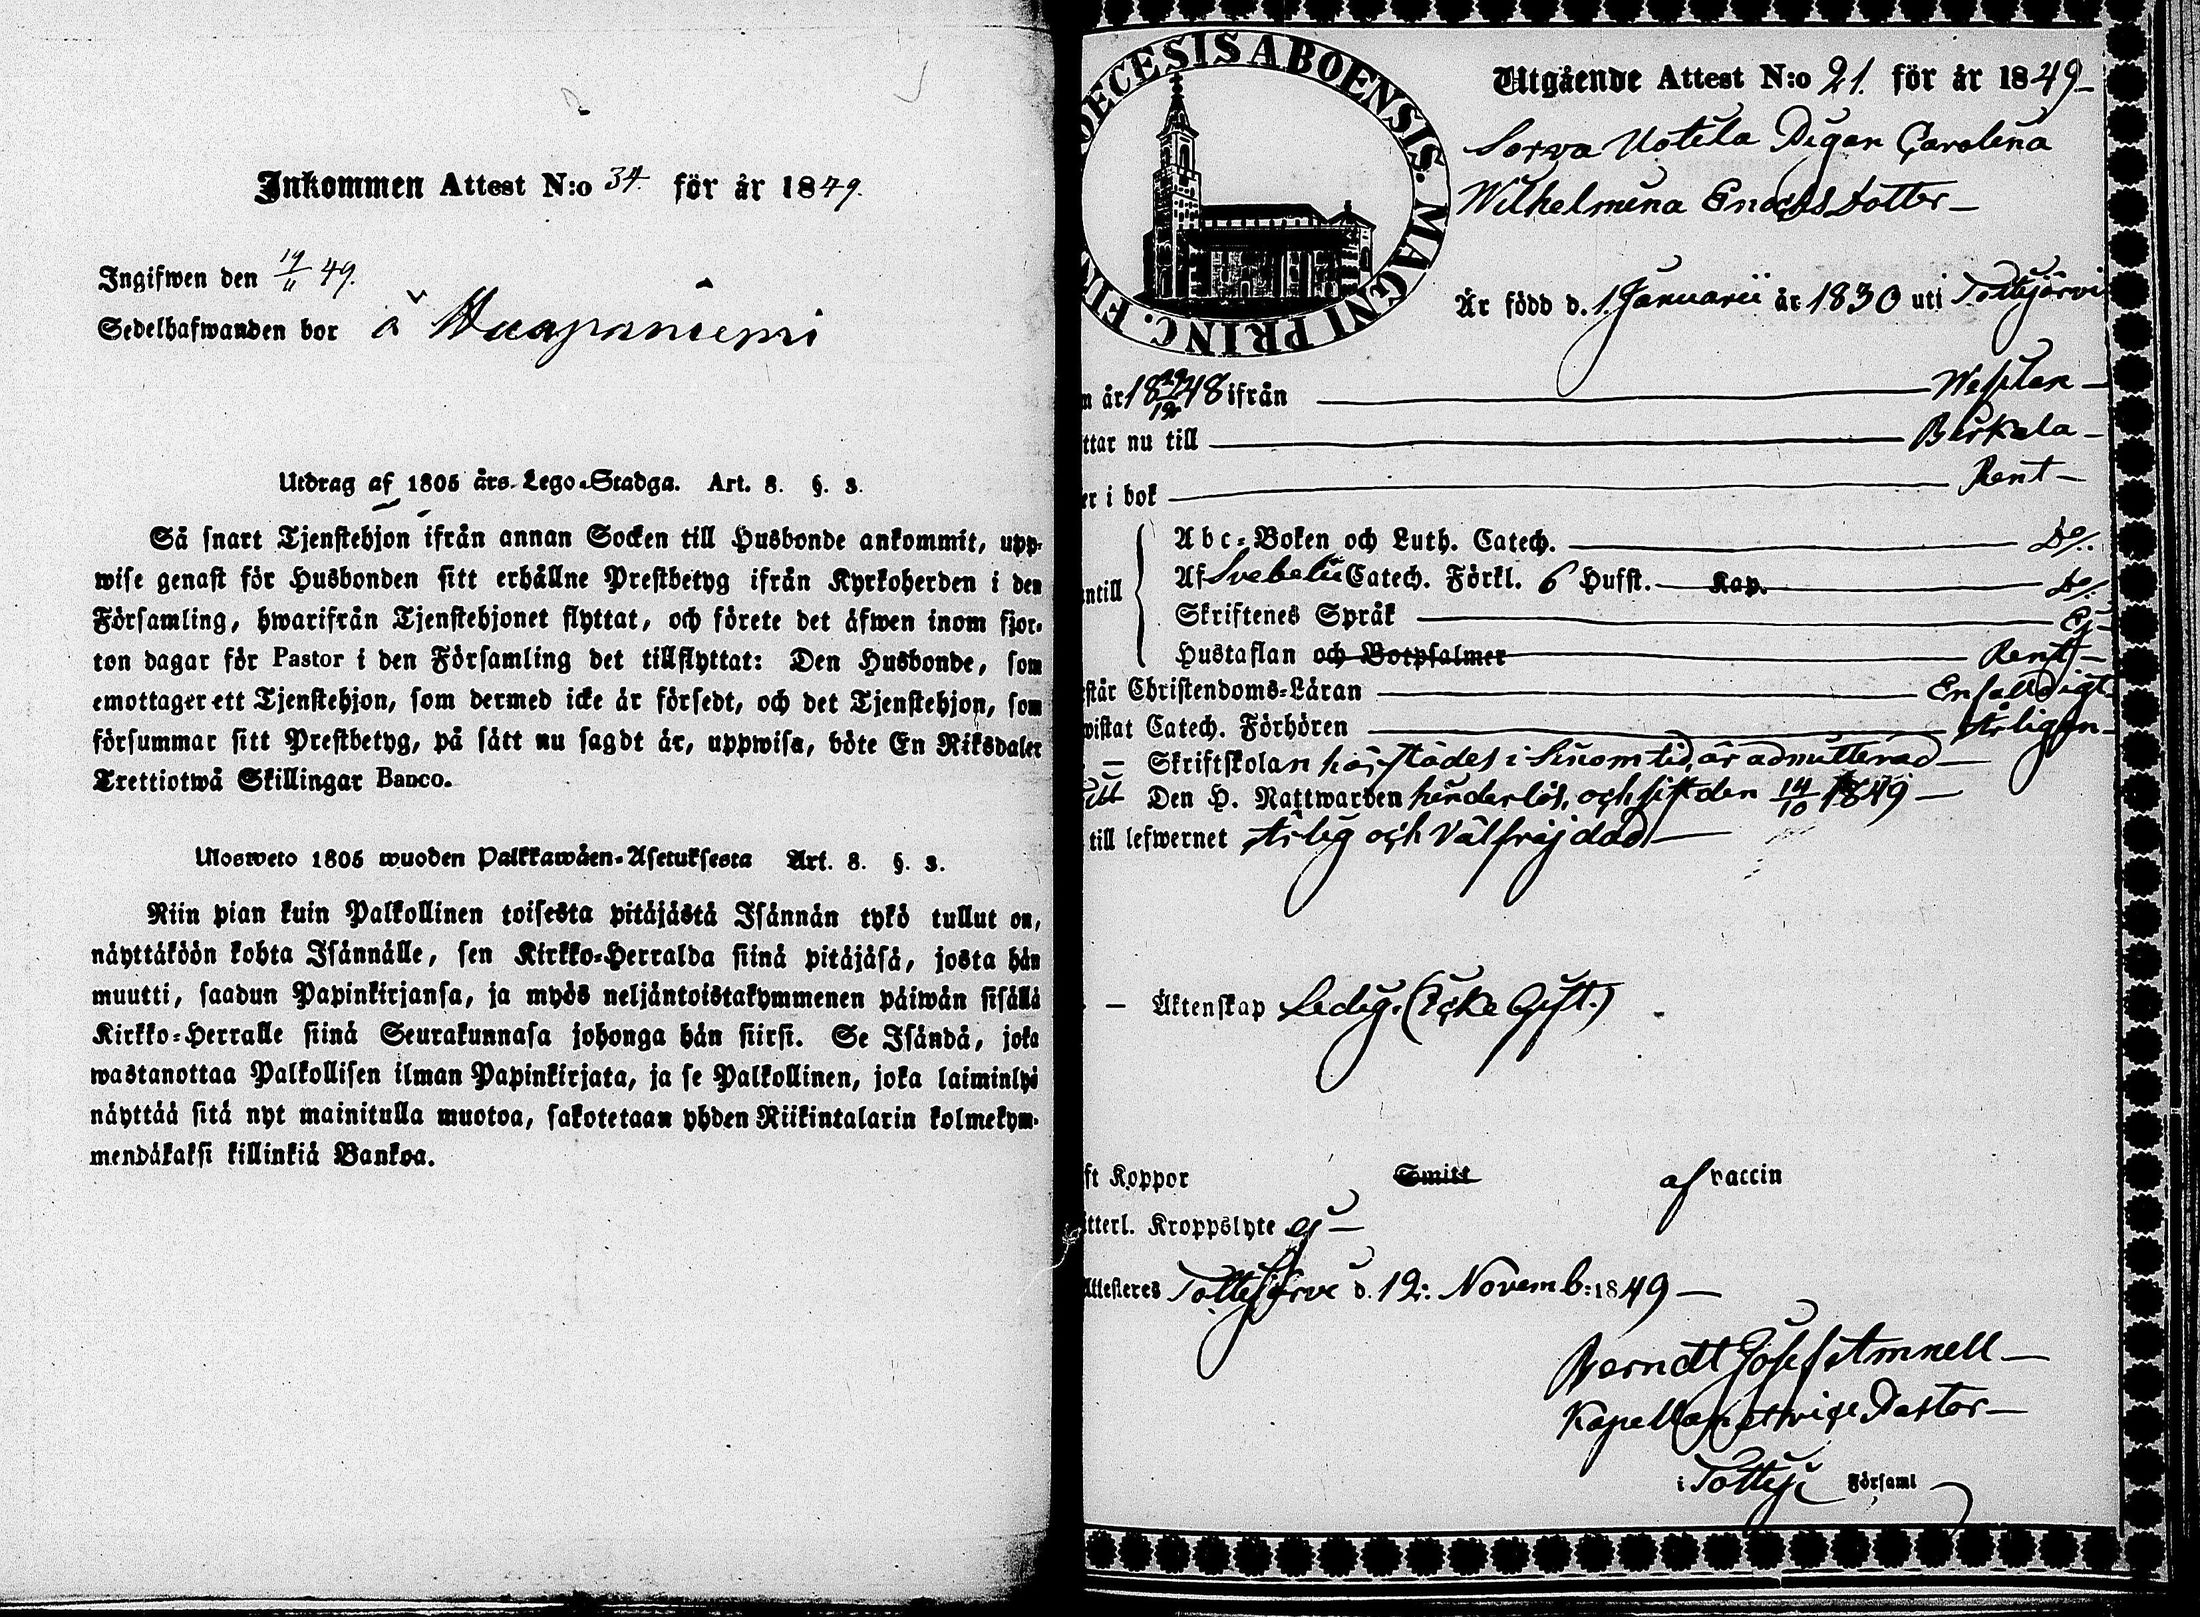 Inkommen Attest N:o 34. för år 1849.
Ingifwen den 19/11 49.
Sedelhafwanden bor å Haapaniemi
Utdrag af 1805 års Lego-Stadga. Art. 8. §. 3.
Så snart Tjenstehjon ifrån annan Socken till Husbonde ankommit, upp-
wise genast för Husbonden sitt erhållne Prestbetyg ifrån Kyrkoherden i den
Församling, hwarifrån Tjenstehjonet flyttat, och förete det äfwen inom fjor-
ton dagar för Pastor i den Församling det tillflyttat: Den Husbonde, som
emottager ett Tjenstehjon, som dermed icke är försedt, och det Tjenstehjon, som
försummar sitt Prestbetyg, på sätt nu sagdt är, uppwisa, böte En Riksdaler
Trettiotwå Skillingar Banco.
Ulosweto 1805 wuoden Palkkawäen-Asetuksesta Art. 8. §. 3.
Niin pian kuin Palkollinen toisesta pitäjästä Isännän tykö tullut on,
näyttäköön kohta Isännälle, sen Kirkko-Herralda siinä pitäjäsä, josta hän
muutti, saadun Papinkirjansa, ja myös neljäntoistakymmenen päiwän sisällä
Kirkko-Herralle siinä Seurakunnasa johonga hän siirsi. Se Isändä, joka
wastanottaa Palkollisen ilman Papinkirjata, ja se Palkollinen, joka laiminlyö
näyttää sitä nyt mainitulla muotoa, sakotetaan yhden Riikintalarin kolmekym-
mendäkaksi killinkiä Bankoa.
DECESIS ABOENSIS. MAGNI PRINC. FIN
Utgående Attest N:o 21. för år 1849
Sorva Uotila Pigan Carolina
Wilhelmina Enochsdotter
Är född d. 1 Januarii år 1830 uti Tottijärvi
n år 1848 ifrån Wesilax
ttar nu till Birkala
er i bok Rent
Abc-Boken och Luth. Catech. Do.
ntill Af Svebelii Catech. Förkl. 6 Hufst. Kap. Do.
Skriftenes Språk Ej
Hustaflan och Botpsalmer Rent
står Christendoms-Läran Enfaldigt
wistat Catech. Förhören Årligen
Skriftskolan härstädes i sinom tid, är admitterad
till Den H. Nattwarden hinderlös, och sist den 14/10 1849
till lefwernet Ärlig och Välfräjdad
Äktenskap Ledig. (Icke Gift.)
ft Koppor Smitt af vaccin
itterl. Kroppslyte ej
Attesteres Tottijärvi d. 12. Novemb: 1849
Berndt Josef Amnell
Kapellan vice Pastor
i Tottij Församl